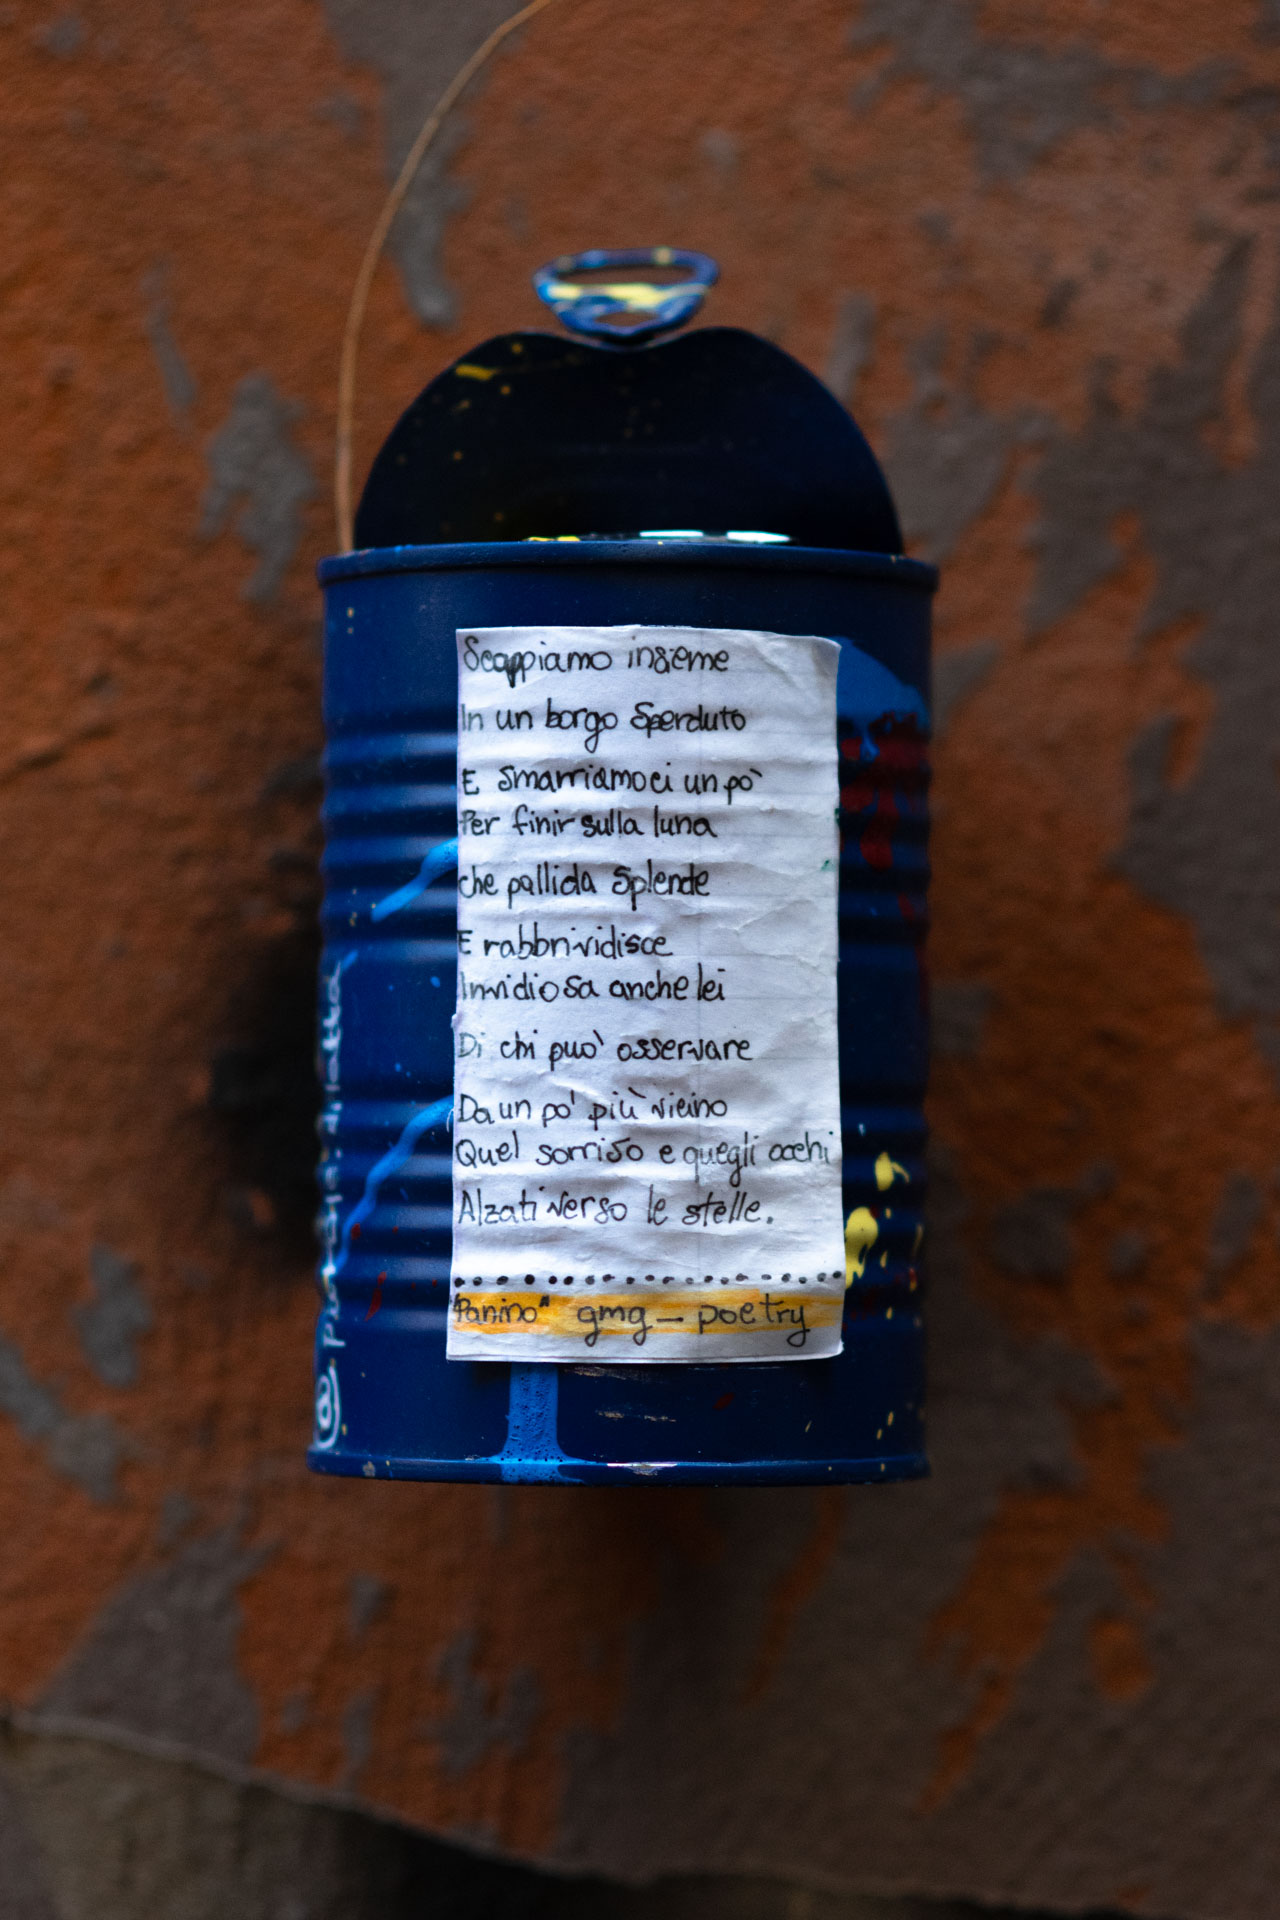 Scappiamo insieme
In un borgo sperduto
E smarriamoci un pò
Per finir sulla luna
che pallida splende
E rabbrividisce
Invidiosa anche lei
Di chi può osservare
Da un po' più vicino
Quel sorriso e quegli occhi
Alzati verso le stelle.
"Panino" gmg_poetry